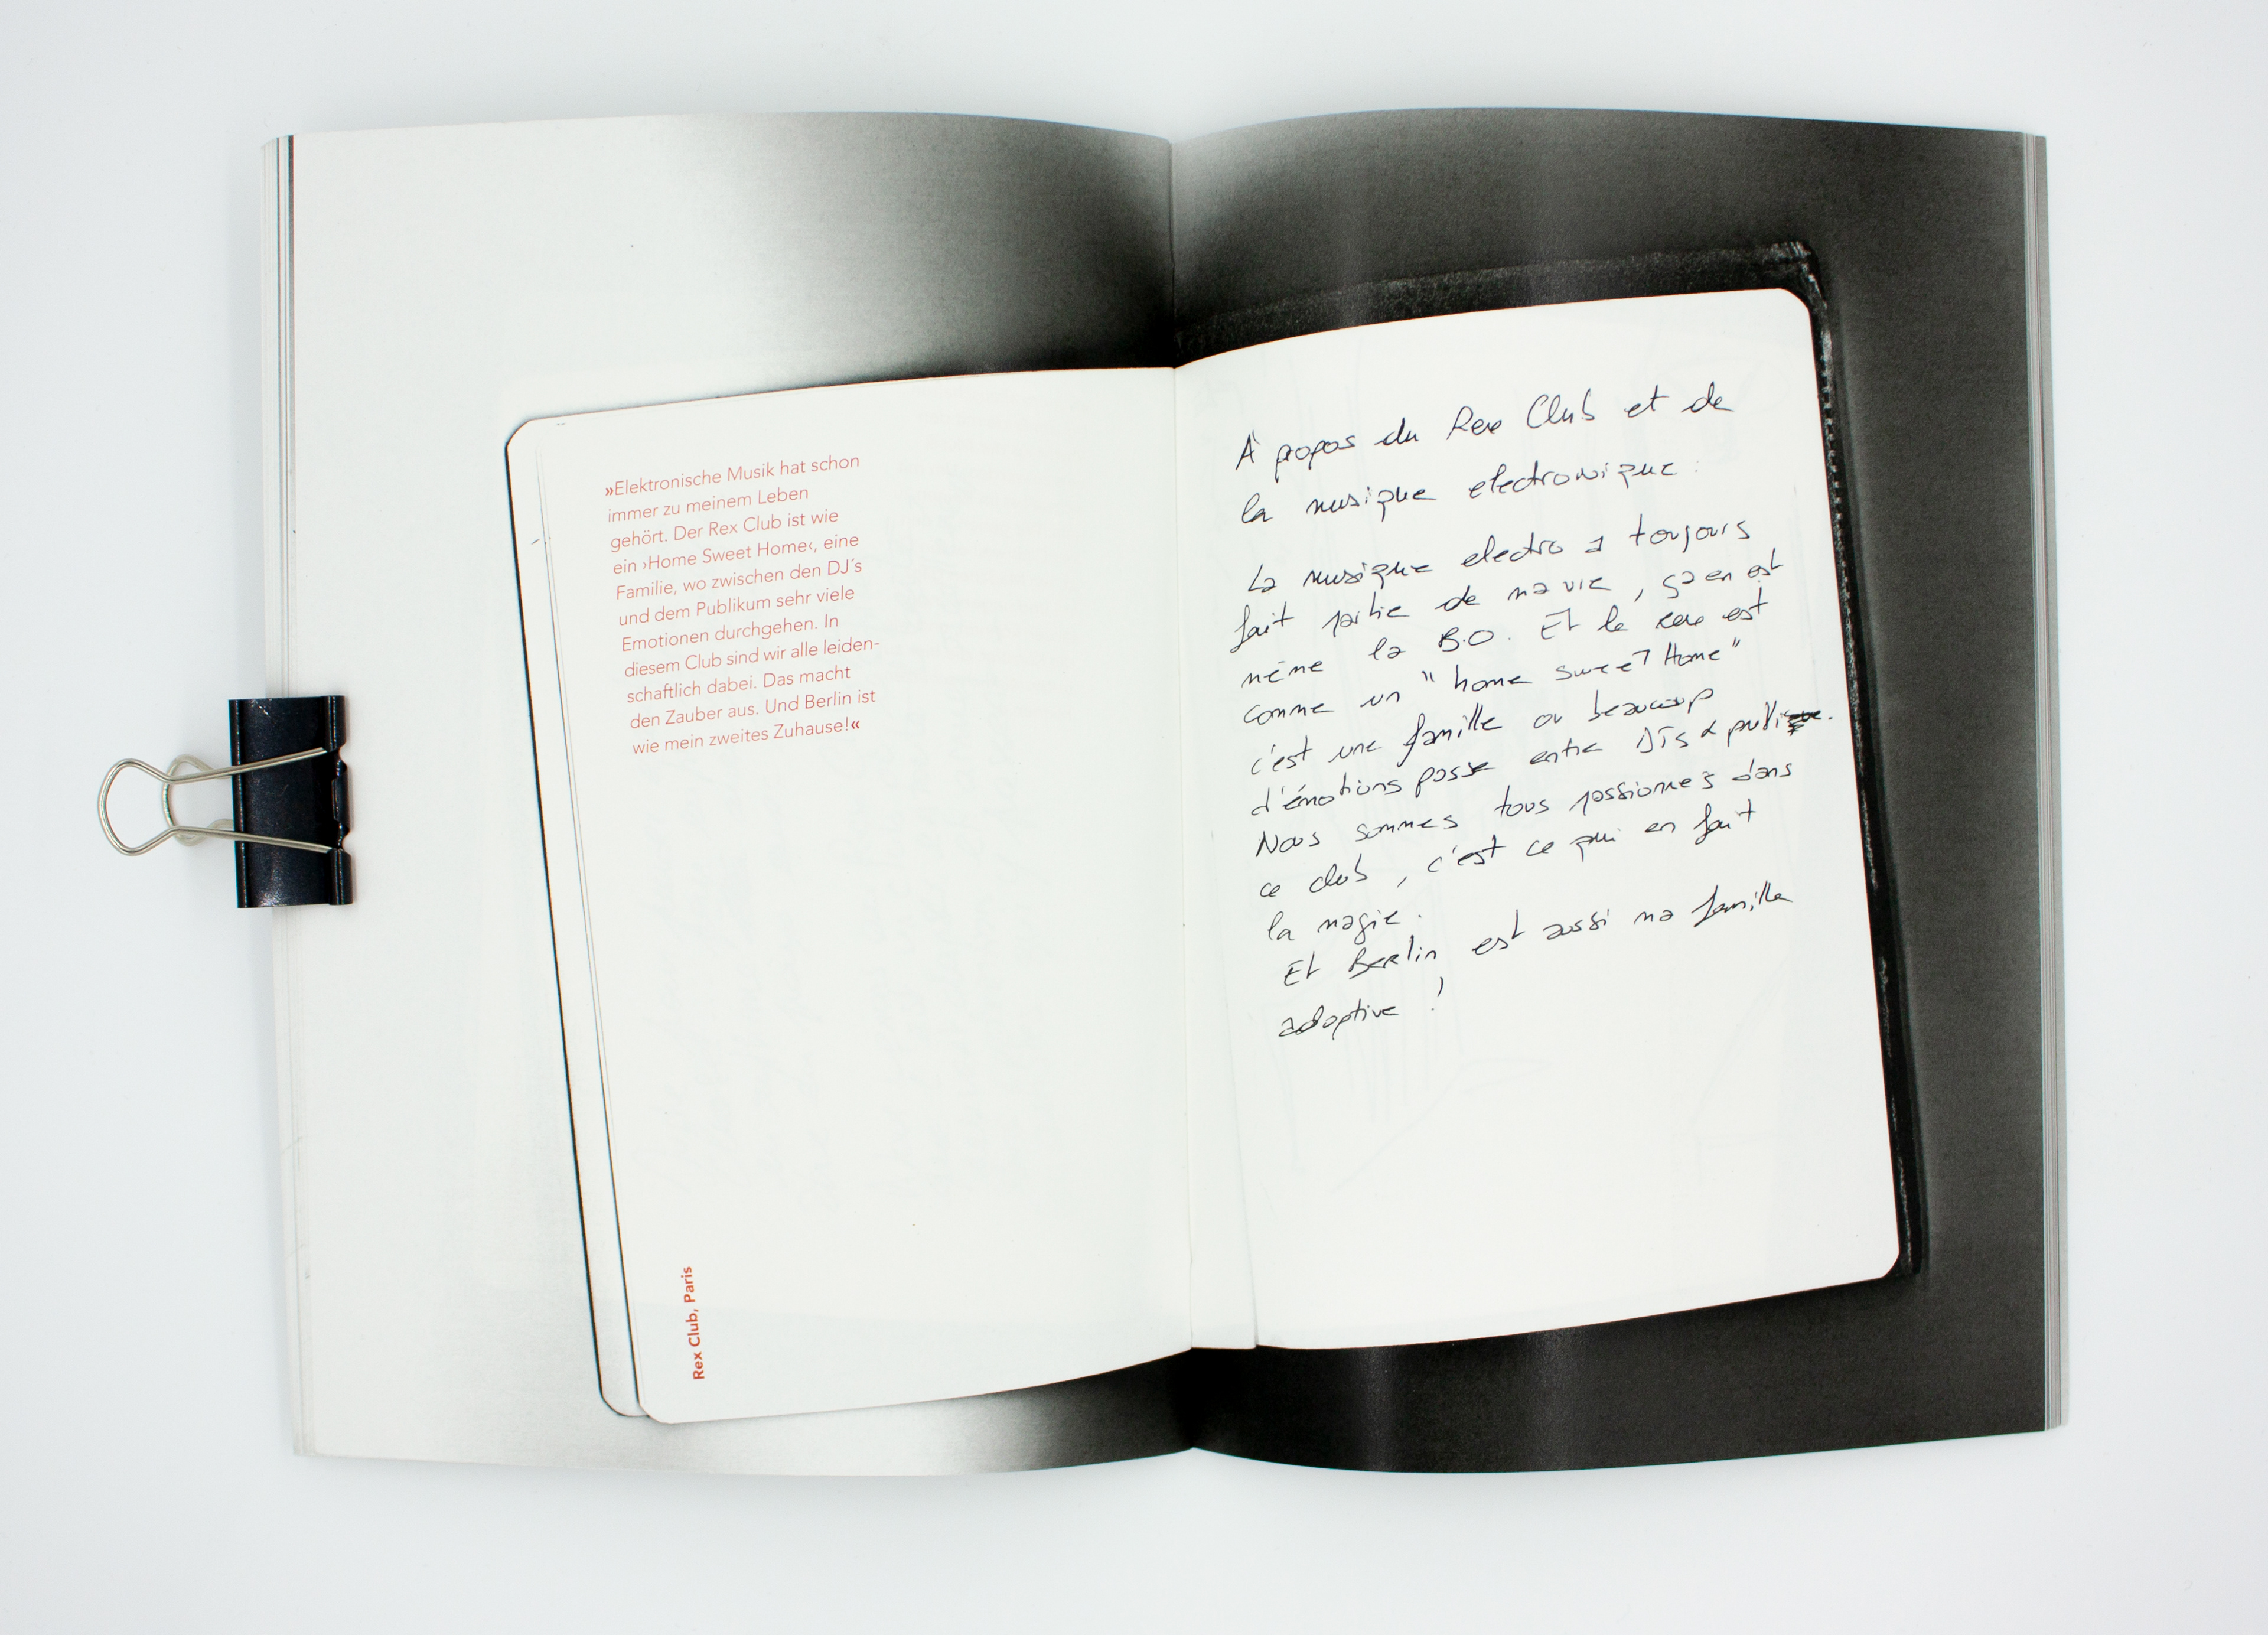 »Elektronische Musik hat schon
immer zu meinem Leben
gehört. Der Rex Club ist wie
ein ›Home Sweet Home‹, eine
Familie, wo zwischen den DJ´s
und dem Publikum sehr viele
Emotionen durchgehen. In
diesem Club sind wir alle leiden-
schaftlich dabei. Das macht
den Zauber aus. Und Berlin ist
wie mein zweites Zuhause!«
Rex Club, Paris
À propos du Rex Club et de
la musique electronique :
La musique electro a toujours
fait partie de ma vie, ça en est
même la B.O. Et le rex est
comme un "home sweet Home"
c'est une famille ou beaucoup
d'émotions passe entre DJs & public.
Nous sommes tous passionnés dans
ce club, c'est ce qui en fait
la magie.
Et Berlin est aussi ma famille
adoptive !